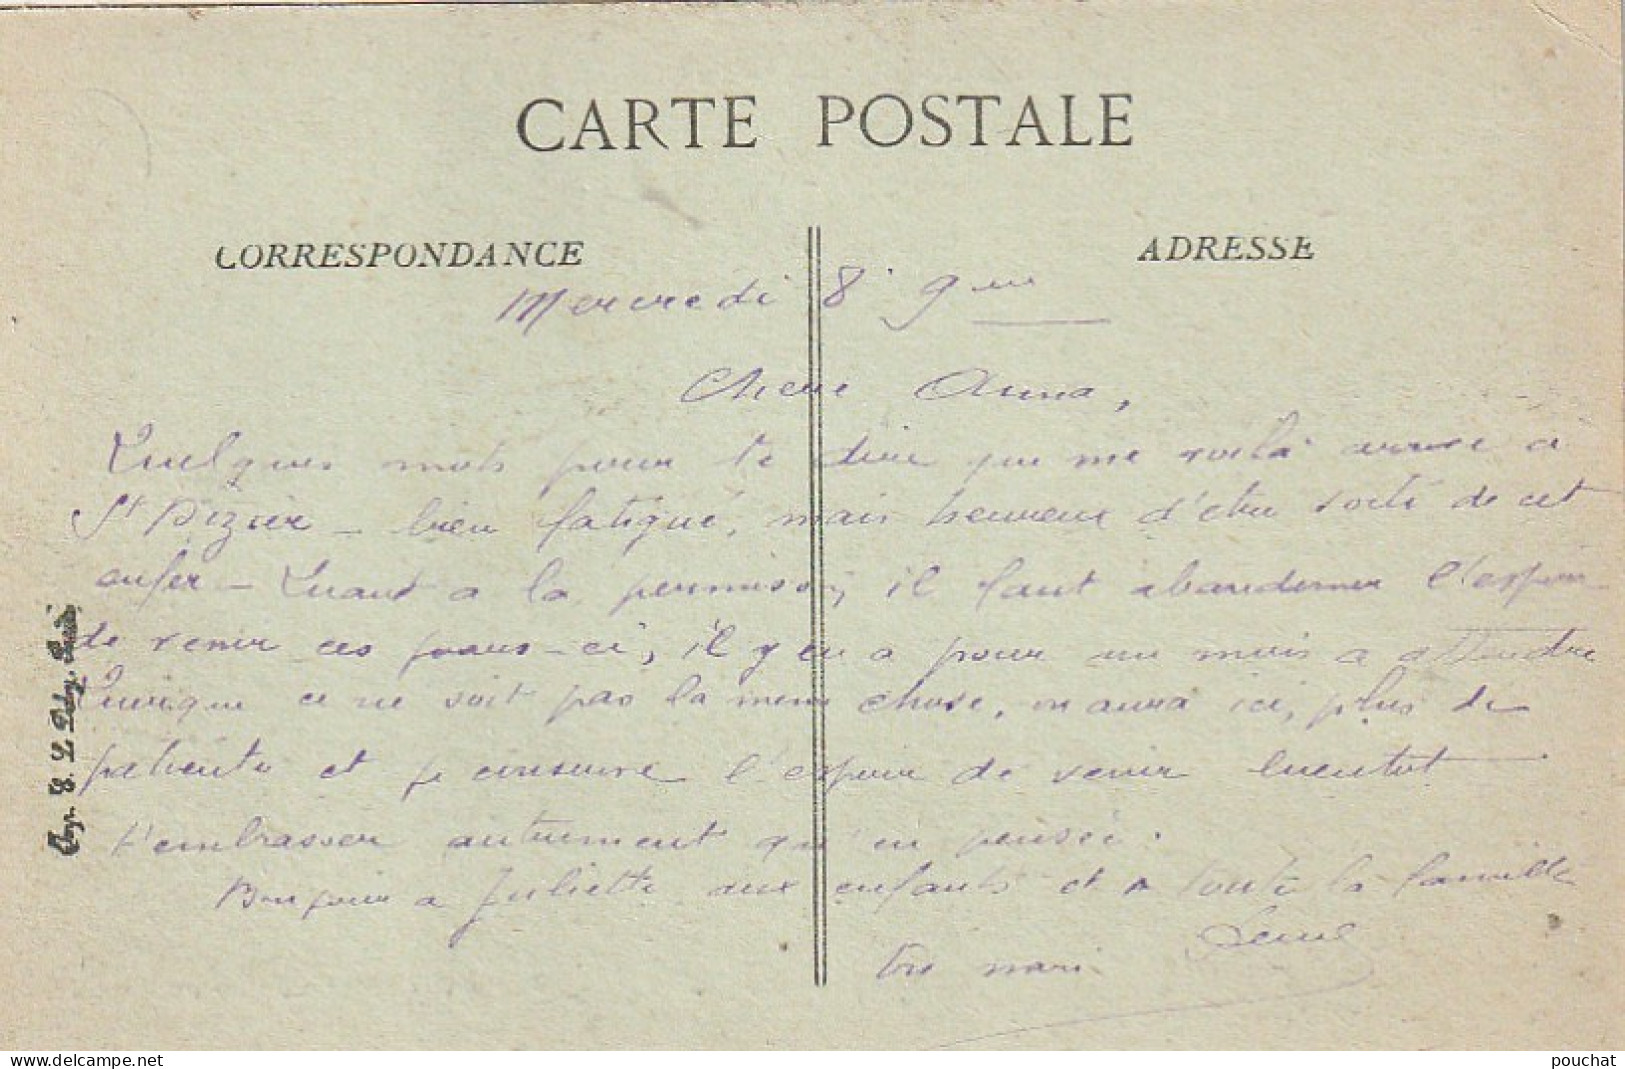 CARTE POSTALE
CORRESPONDANCE
ADRESSE
Mercredi 8 9bre
Chere Anna,
Quelques mots pour te dire que me voilà arrivé à
St Dizier – bien fatigué, mais heureux d'être sorti de cet
enfer – Quant a la permission, il faut abandonner l'espoir
de venir ces jours-ci, il y en a pour un mois a attendre
Quoique ce ne soit pas la meme chose, on aura ici, plus de
patiente et je conserve l'espoir de venir bientot
t'embrasser autrement qu'en pensée.
Bonjour a Juliette aux enfants et a toute la famille
Ton mari
delcampe.net
pouchat